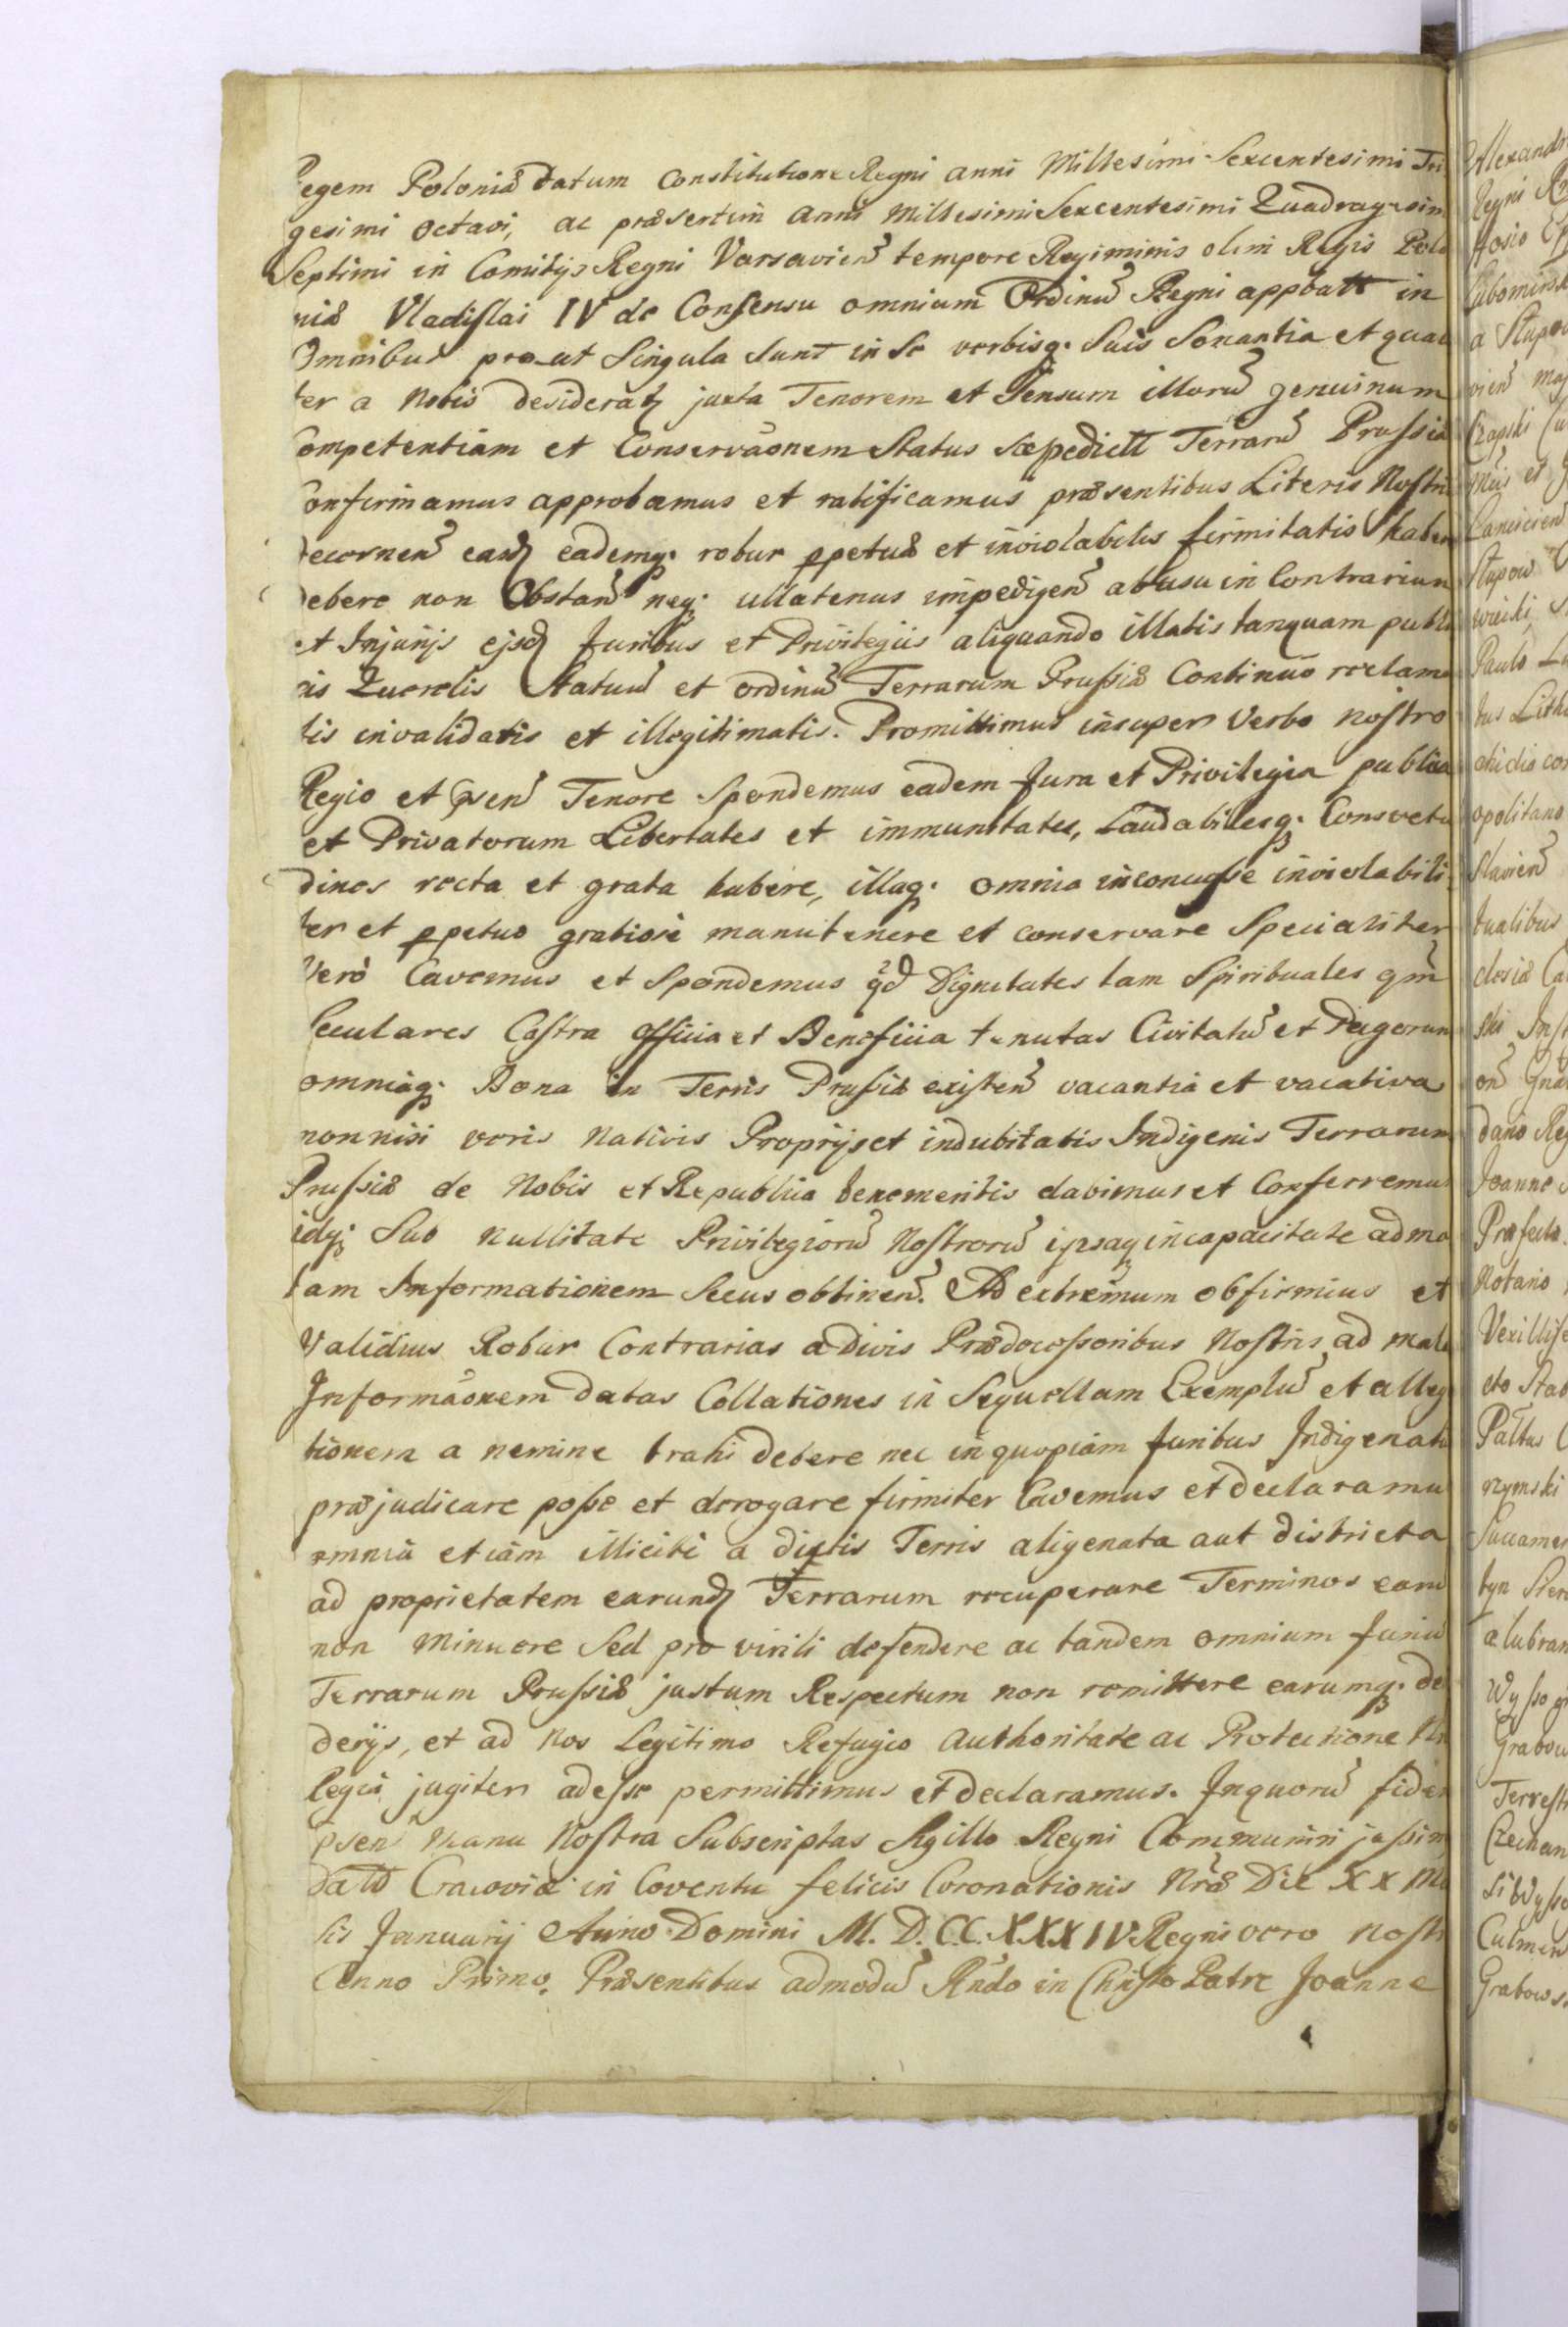 Regem Poloniæ datum Constitutione Regni anni Millesimi Sexcentesimi Tri
gesimi Octavi, ac præsertim anni Millesimi Sexcentesimi Quadragesim
Septimi in Comitijs Regni Varsavien̄ tempore Regiminis olim Regis Polo
niæ Vladislai IV de Consensu omnium Ordinū Regni appbatt in
Omnibus pro-ut Singula Sunt in Se verbisq. Suis Sonantia et qual
ter a Nobis desideratꝫ juxta Tenorem et Sensum illorū genuinum
Competentiam et Conservāonem Status Sæpedictt Terrarū Prussiæ
Confirmamus approbamus et ratificamus præsentibus Literis Nostris
decernen̄ easdꝫ eademq. robur ppetuæ et inviolabilis firmitatis haber
debere non Obstan̄ neq. ullatenus impedigen̄ abusu in Contrarium
et Injurijs ejsdꝫ Juribus et Privilegiis aliquando illatis tanquam publi
cis Querelis Statuū et ordinū Terrarum Prussiæ Continuo reclama
tis invalidatis et illegitimatis. Promittimus insuper Verbo nostro
Regio et psen̄ Tenore Spondemus eadem Jura et Privilegia publica
et Privatorum Libertates et immunitates, Laudabilesq. Consvetu
dines recta et grata habere, illaq. omnia inconcusse inviolabili
ter et ppetuo gratiose manutenere et conservare Specialiter
Verò Cavemus et Spondemus qd Dignitates tam Spirituales qm̄
Seculares Castra officia et Beneficia tenutas Civitatū et Pagorum
omniaq. Bona in Terris Prussiæ existen̄ vacantia et vacativa
nonnisi veris Nativis Proprijs et indubitatis Indigenis Terrarum
Prussiæ de Nobis et Republica benemeritis dabimus et Conferremus
idq. Sub Nullitate Privilegiorū Nostrorū ipsaq incapacitate ad ma
lam Informationem Secus obtinen̄. Ad extremum obfirmius et
Validius Robur Contrarias a Divis Prædecessoribus Nostris ad mala
Informāonem datas Collationes in Sequellam Exemplū et alleg
tionem a nemine trahi debere nec in quopiam Juribus Indigenatu
præjudicare posse et derogare firmiter Cavemus et declaramu
omnia etiam illiciti a dictis Terris aligenata aut districta
ad proprietatem earundꝫ Terrarum recuperare Terminos earu
non Minuere Sed pro virili defendere ac tandem omnium Juriū
Terrarum Prussiæ justum Respectum non romittere earumq. de
derijs, et ad Nos Legitimo Refugio Authoritate ac Protectione
Regia jugiter adesse permittimus et declaramus. In quorū fidem
psen̄ Manu Nostra Subscriptas Sigillo Regni Communiri jussim
Datt Cracoviæ in Coventu felicis Coronationis Nr̄æ Die XX Me
sis Januarij Anno Domini M.D.C.C.XXXIV Regni vero Nostr
Anno Primo. Præsentibus admodū Rn̄do in Christo Patre Joanne